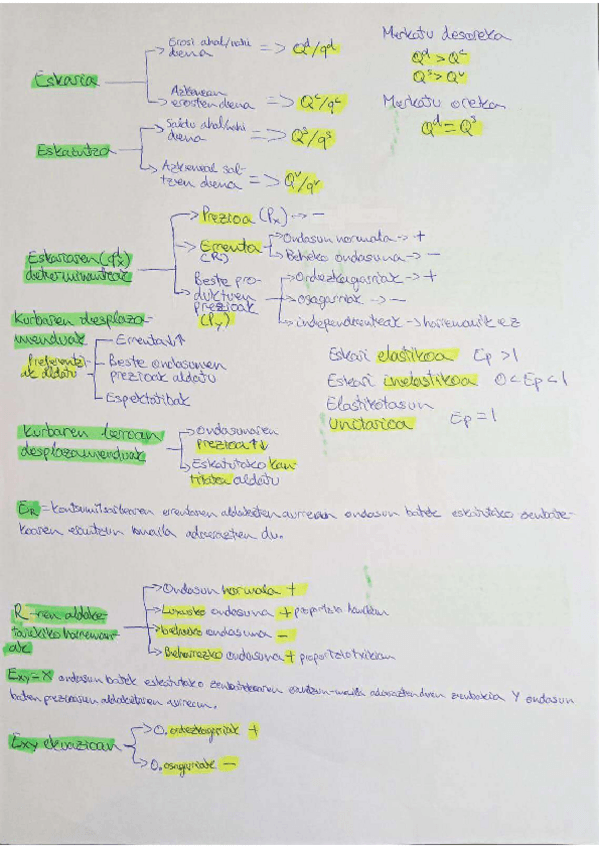 Eskaria
Erosi ahal/nahi
dena => Qd/qd
Azkenean
erosten dena => Qc/qc
Eskaintza
Saldu ahal/nahi
dena => Qs/qs
Azkenean sal-
tzen dena => Qv/qv
Merkatu desoreka
Qd > Qc
Qs > Qv
Merkatu oreka
Qd = Qs
Eskariaren (qdx)
determinanteak
Prezioa (Px) -> -
Errenta
(R)
Ondasun normala -> +
Beheko ondasuna -> -
Beste pro-
duktuen
prezioak
(Py)
Ordezkagarriak -> +
osagarriak -> -
independenteak -> harremanik ez
Kurbaren desplaza-
menduak
Preferentzi-
ak aldatu
Errenta ↓↑
Beste ondasunen
prezioak aldatu
Espektatibak
Eskari elastikoa Ep > 1
Eskari inelastikoa 0 < Ep < 1
Elastikotasun
unitarioa Ep = 1
Kurbaren beroan
desplazamenduak
Ondasunaren
prezioa ↑↓
Eskatutako kan-
titatea aldatu
ER = kontsumitzailearen errentaren aldaketen aurrean ondasun batek eskatutako zenbate-
koaren erantzun maila adierazten du.
R-ren aldake-
harreman-
ak
Ondasun normala +
Luxuzko ondasuna + proportzio handian
beheko ondasuna -
Beharrezko ondasuna + proportzio txikian
Exy - X ondasun batek eskatutako zenbatekoaren erantzun-maila adierazten duen zenbakia Y ondasun
baten prezioaren aldaketaren aurrean.
Exy ekuazioan
O. ordezkagarriak +
O. osagarriak -